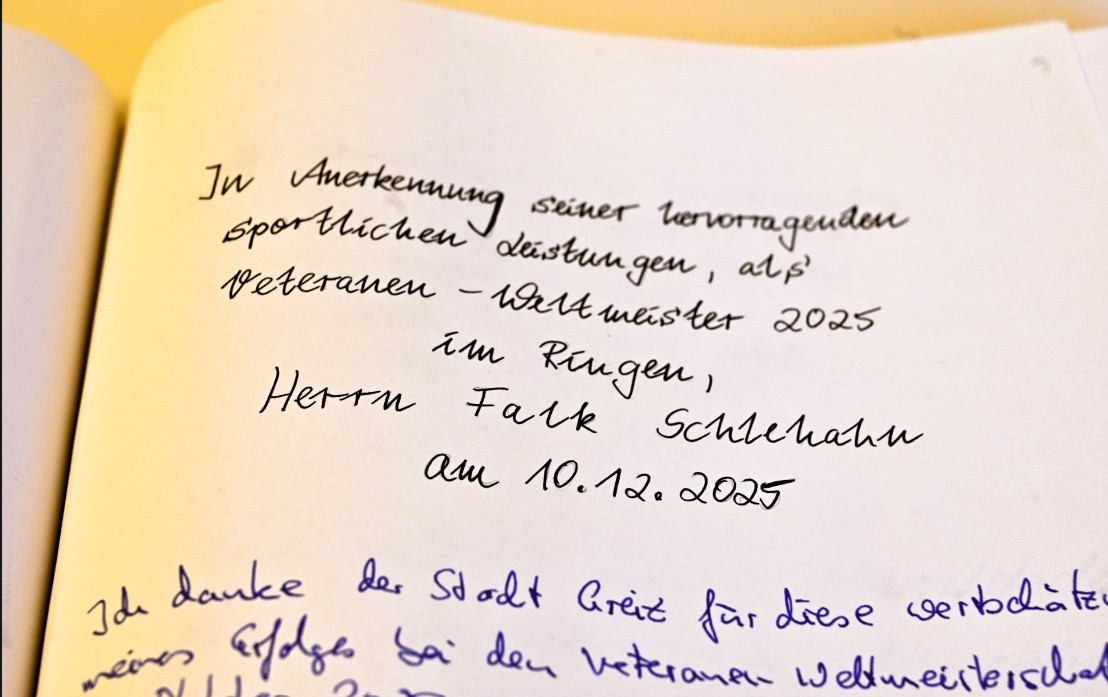 In Anerkennung seiner hervorragenden
sportlichen Leistungen, als
Veteranen - Weltmeister 2025
im Ringen,
Herrn Falk Schlehahn
am 10.12.2025
Ich danke der Stadt Greiz für diese Wertschätz
meines Erfolges bei den Veteranen Weltmeisterscha